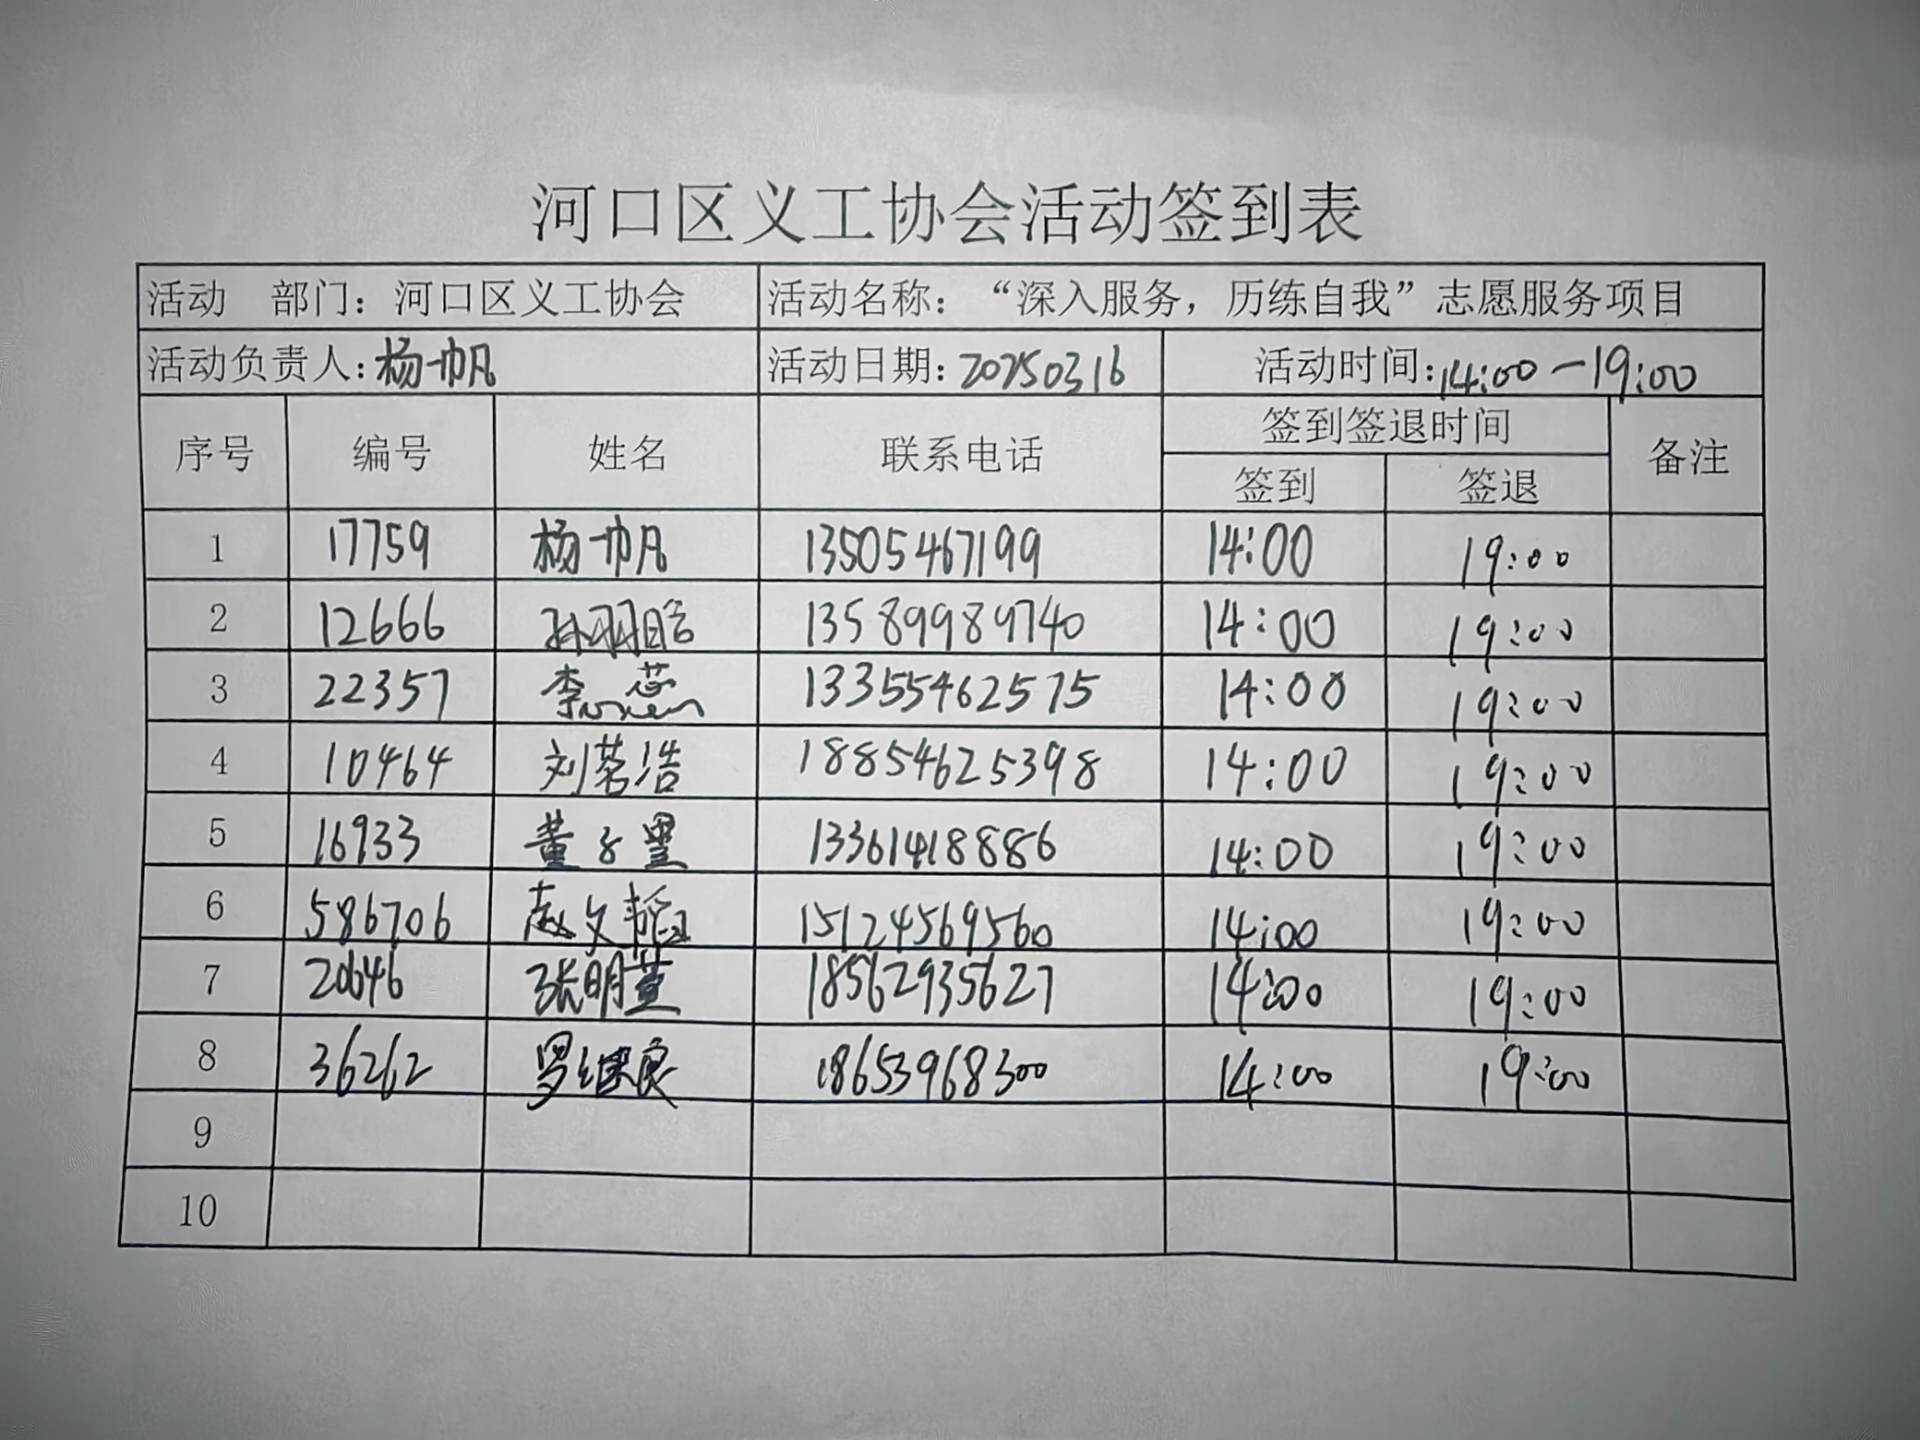 河口区义工协会活动签到表
活动 部门：河口区义工协会 活动名称：“深入服务，历练自我”志愿服务项目
活动负责人：杨帅凡 活动日期：20250316 活动时间：14:00—19:00
序号 编号 姓名 联系电话 签到签退时间 备注
签到 签退
1 17759 杨帅凡 13505467199 14:00 19:00
2 12666 孙翊晗 13589989740 14:00 19:00
3 22357 李蕊 13355462575 14:00 19:00
4 10464 刘茗浩 18854625398 14:00 19:00
5 16933 董子墨 13361418886 14:00 19:00
6 586706 赵文韬 15124569560 14:00 19:00
7 20646 张明萱 18562935627 14:00 19:00
8 36262 罗继良 18653968300 14:00 19:00
9
10